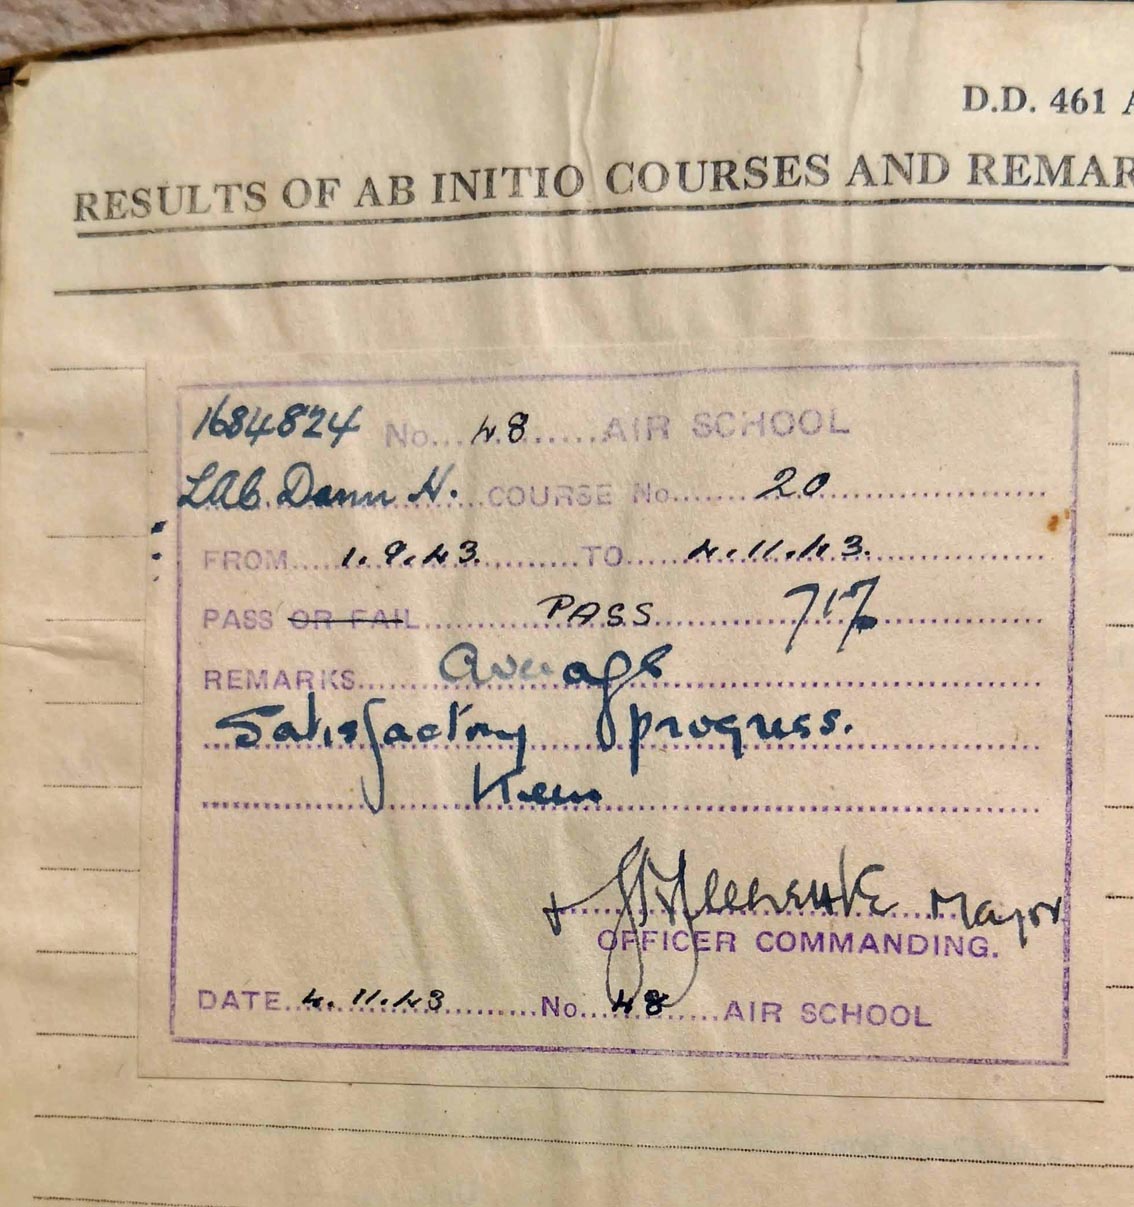 D.D. 461 A
RESULTS OF AB INITIO COURSES AND REMAR
1684824 No. 48 AIR SCHOOL
LAC. Dann H. COURSE No. 20
FROM 1.9.43 TO 4.11.43.
PASS OR FAIL PASS 71%
REMARKS Average
Satisfactory progress.
Keen
Major
OFFICER COMMANDING.
DATE 4.11.43 No. 48 AIR SCHOOL